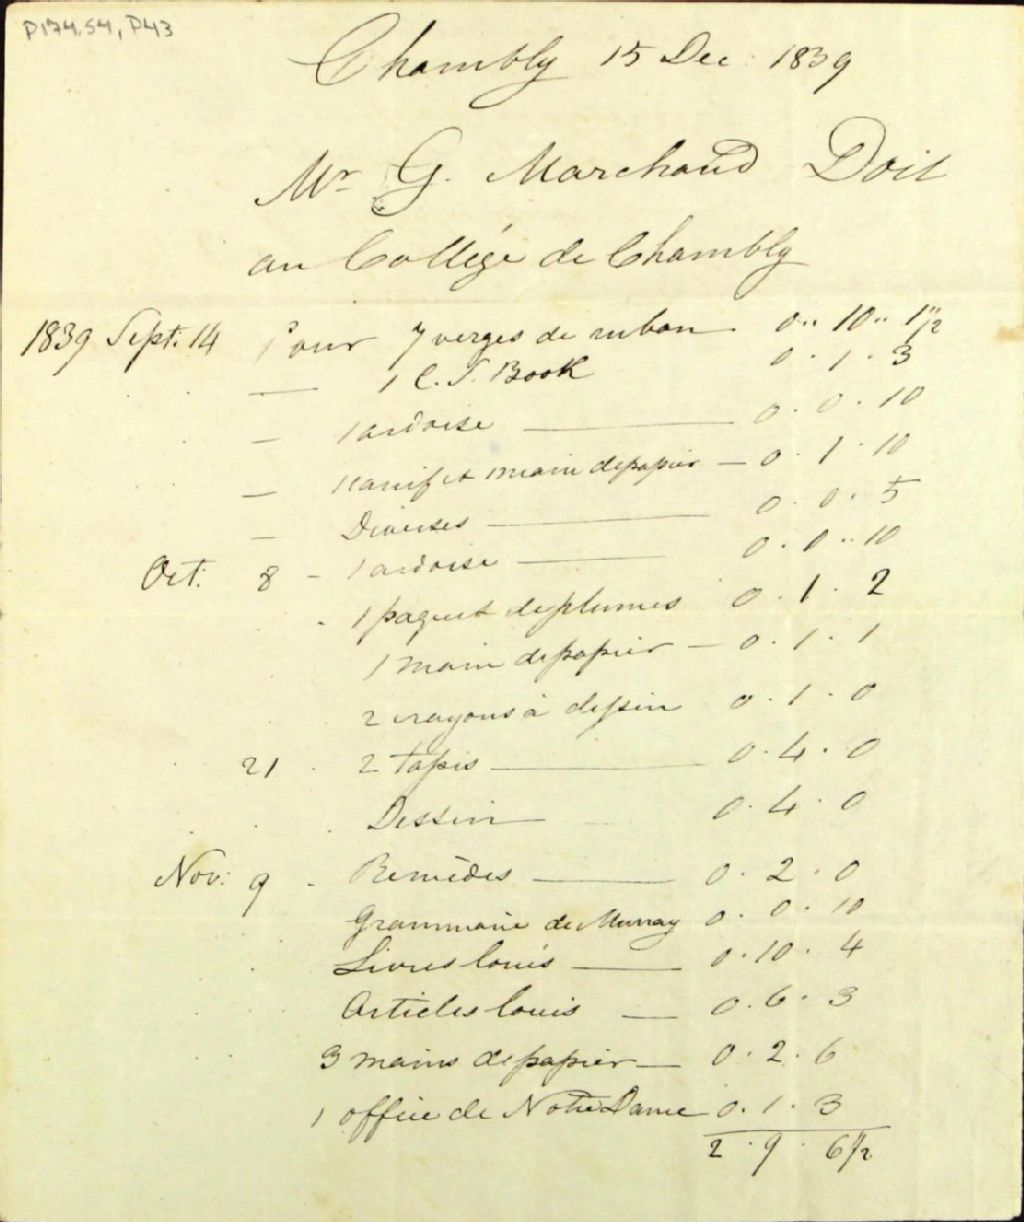 P174,S4,P43
Chambly 15 Dec: 1839
Mr G. Marchand Doit
au Collége de Chambly
1839 Sept: 14 Pour 7 verges de ruban 0 " 10 " 1 1/2
— 1 C. T. Book 0 . 1 . 3
— 1 ardoise — 0 . 0 . 10
— 1 canif et 1 main de papier — 0 . 1 . 10
— Diverses — 0 . 0 . 5
Oct: 8 - 1 ardoise — 0 . 0 . 10
1 paquet de plumes 0 . 1 . 2
1 main de papier — 0 . 1 . 1
2 crayons à dessin 0 . 1 . 0
21 2 tapis — 0 . 4 . 0
Dessin — 0 . 4 . 0
Nov: 9 - Remèdes — 0 . 2 . 0
Grammaire de Murray 0 . 0 . 10
Livres louis — 0 . 10 . 4
Articles louis — 0 . 6 . 3
3 mains de papier — 0 . 2 . 6
1 office de Notre Dame 0 . 1 . 3
2 . 9 . 6 1/2